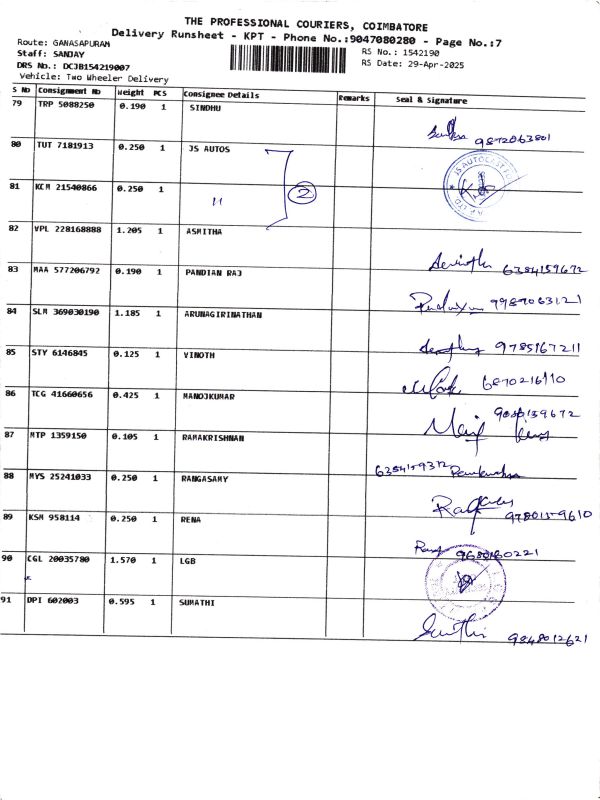 THE PROFESSIONAL COURIERS, COIMBATORE
Delivery Runsheet - KPT - Phone No.:9047080280 - Page No.:7
Route: GANASAPURAM
Staff: SANJAY
DRS No.: DCJB154219007
Vehicle: Two Wheeler Delivery
RS No.: 1542190
RS Date: 29-Apr-2025
S No Consignment No Weight PCS Consignee Details Remarks Seal & Signature
79 TRP 5088250 0.190 1 SINDHU 9872063801
80 TUT 7181913 0.250 1 JS AUTOS
81 KCM 21540866 0.250 1 " 2
82 VPL 228168888 1.205 1 ASMITHA 6384159672
83 MAA 577206792 0.190 1 PANDIAN RAJ 9987063121
84 SLM 369030190 1.185 1 ARUNAGIRINATHAN 9785167211
85 STY 6146845 0.125 1 VINOTH 6870216110
86 TCG 41660656 0.425 1 MANOJKUMAR 9080159672
87 MTP 1359150 0.105 1 RAMAKRISHNAN 6384159372
88 MYS 25241033 0.250 1 RANGASAMY 9780159610
89 KSM 958114 0.250 1 RENA 9680160221
90 CGL 20035780 1.570 1 LGB
91 DPI 602003 0.595 1 SUMATHI 9848012621